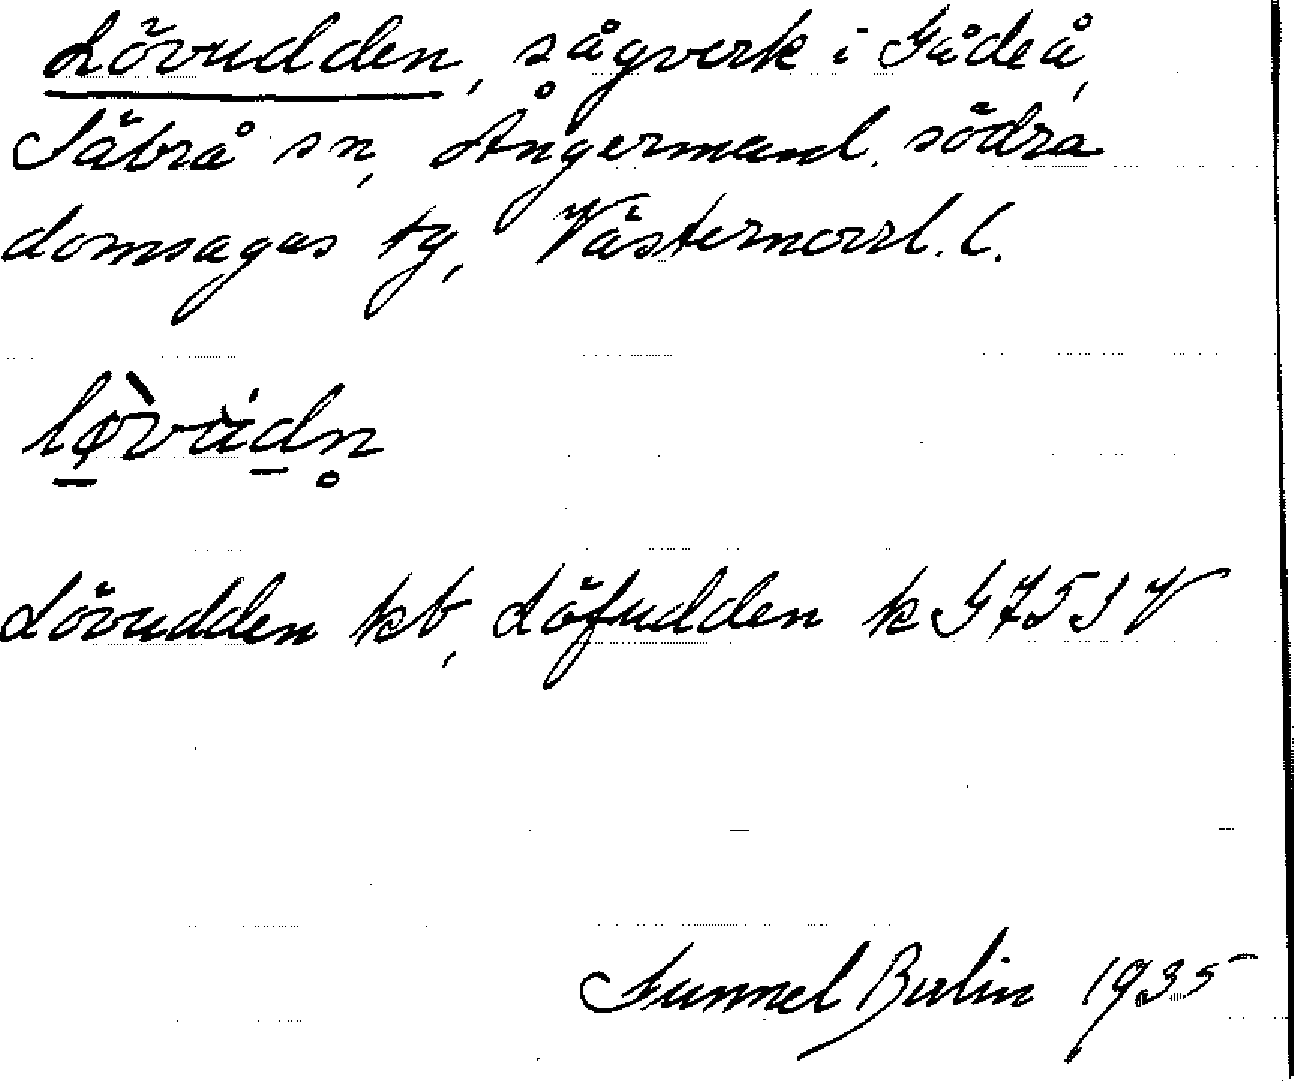 Lövudden, sågverk i Gådeå,
Säbrå sn, Ångermanl. södra
domsagas tg, Västernorrl. l.
Lövudden kb, Löfudden k GJ75SV
Gunnel Burlin 1935